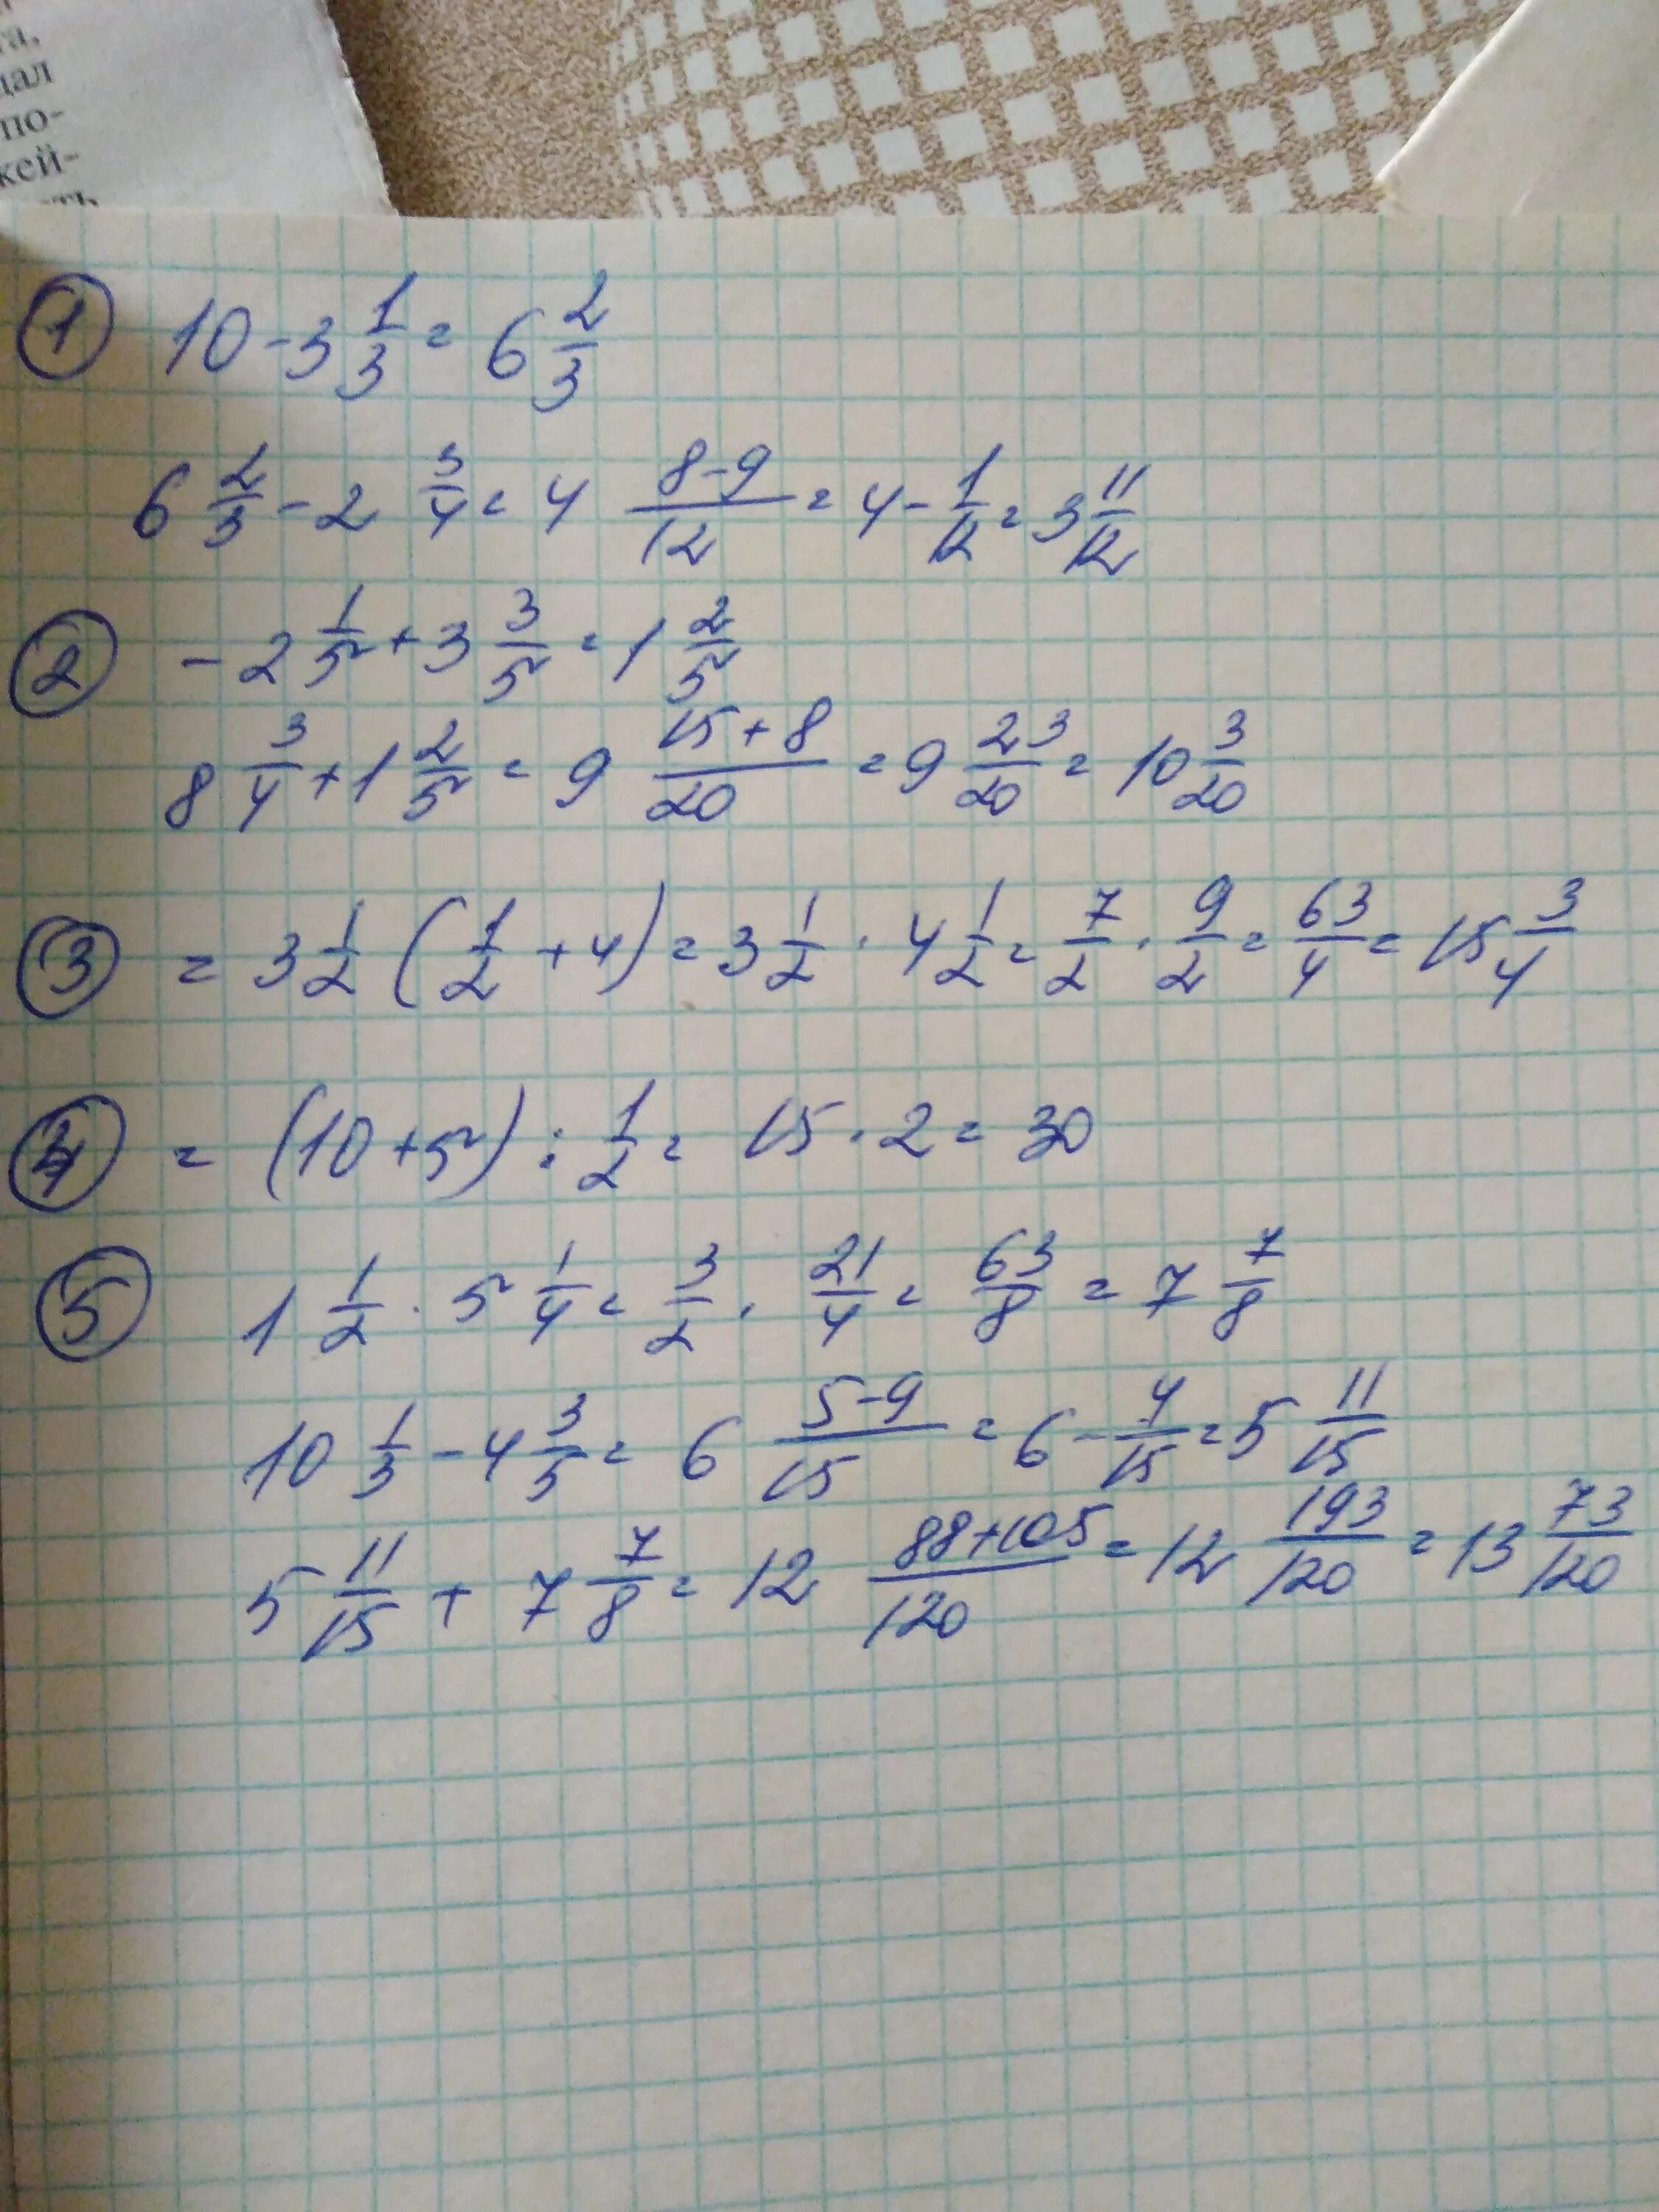 та,
дал
по-
кей-
сть
① 10 - 3 1/3 = 6 2/3
6 2/3 - 2 3/4 = 4 (8-9)/12 = 4 - 1/12 = 3 11/12
② - 2 1/5 + 3 3/5 = 1 2/5
8 3/4 + 1 2/5 = 9 (15+8)/20 = 9 23/20 = 10 3/20
③ = 3 1/2 (1/2 + 4) = 3 1/2 · 4 1/2 = 7/2 · 9/2 = 63/4 = 15 3/4
④ = (10 + 5) : 1/2 = 15 · 2 = 30
⑤ 1 1/2 · 5 1/4 = 3/2 · 21/4 = 63/8 = 7 7/8
10 1/3 - 4 3/5 = 6 (5-9)/15 = 6 - 4/15 = 5 11/15
5 11/15 + 7 7/8 = 12 (88+105)/120 = 12 193/120 = 13 73/120